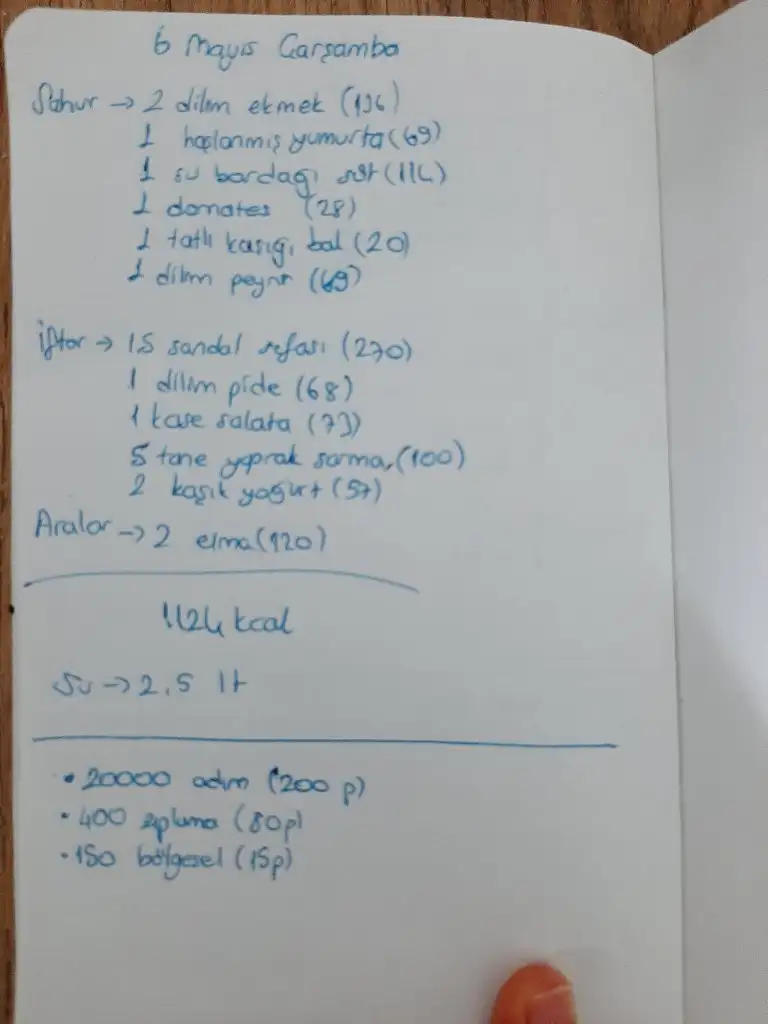 6 Mayıs Çarşamba
Sahur → 2 dilim ekmek (136)
1 haşlanmış yumurta (69)
1 su bardağı süt (114)
1 domates (28)
1 tatlı kaşığı bal (20)
1 dilim peynir (69)
İftar → 1.5 sandal sefası (270)
1 dilim pide (68)
1 kase salata (73)
5 tane yaprak sarma (100)
2 kaşık yoğurt (57)
Aralar → 2 elma (120)
1124 kcal
Su → 2.5 lt
• 20000 adım (200 p)
• 400 zıplama (80p)
• 150 bölgesel (15p)